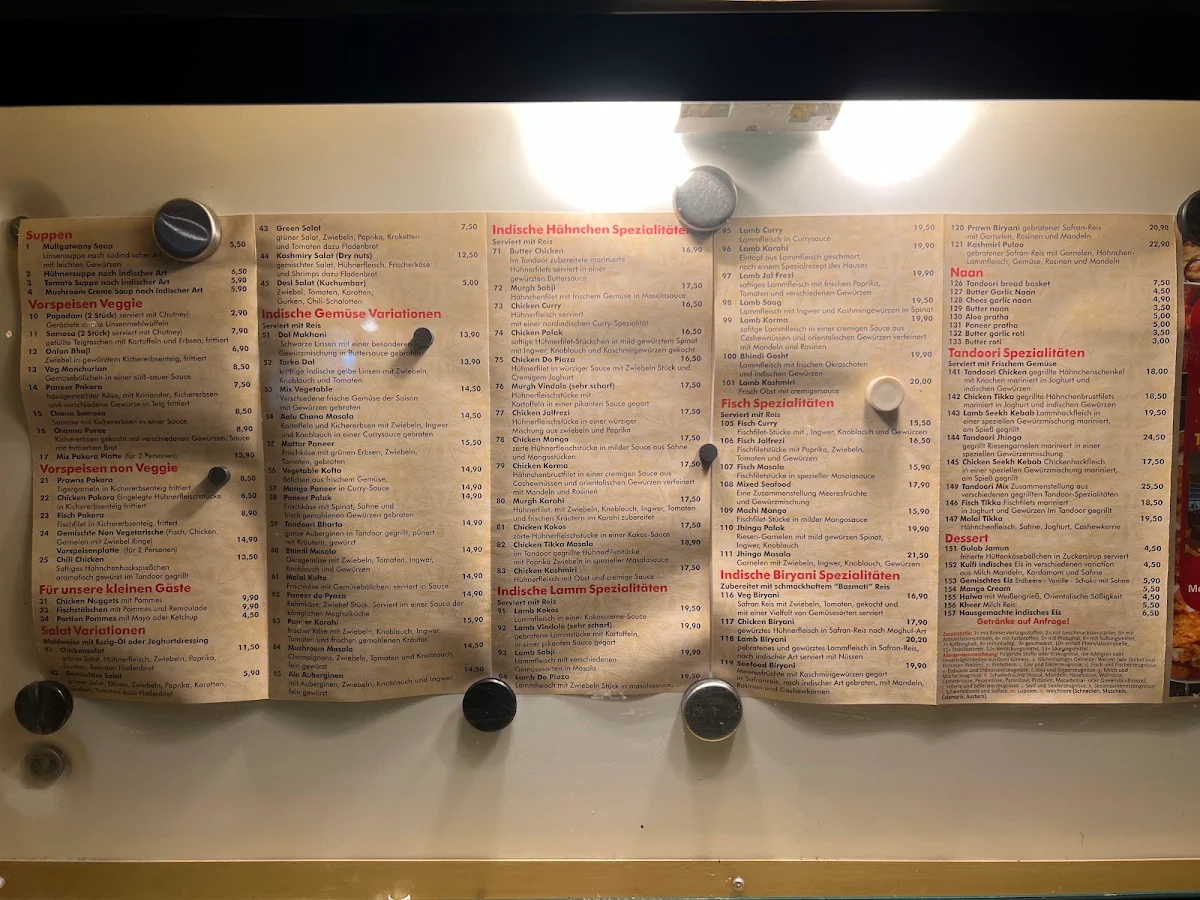 Suppen
1 Mullgatwany Soup 5,50
Linsensuppe nach südindischer Art
mit leichten Gewürzen
2 Hühnersuppe nach indischer Art 6,50
3 Tomato Suppe nach indischer Art 5,90
4 Mushroom Creme Soup nach Indischer Art 5,90
Vorspeisen Veggie
10 Papadam (2 Stück) serviert mit Chutney) 2,90
Geröstete dünne Linsenmehlwaffeln
11 Samosa (2 Stück) serviert mit Chutney) 7,90
gefüllte Teigtaschen mit Kartoffeln und Erbsen, frittiert
12 Onion Bhaji 6,90
Zwiebel in gewürztem Kichererbsenteig, frittiert
13 Veg Manchurian 8,50
Gemüsebällchen in einer süß-sauer Sauce
14 Paneer Pakora 7,50
hausgemachter Käse, mit Koriander, Kichererbsen
und verschiedene Gewürze in Teig frittiert
15 Chana Samosa 8,50
Samosa mit Kichererbsen in einer Sauce
16 Channa Puree 8,90
Kichererbsen gekocht mit verschiedenen Gewürzen, Sauce
mit frittiertem Brot
17 Mix Pakora Platte (für 2 Personen) 13,90
Vorspeisen non Veggie
21 Prawns Pakora 8,50
Tigergarneln in Kichererbsenteig frittiert
22 Chicken Pakora Eingelegte Hühnerfleischstücke 8,50
in Kichererbsenteig frittiert
23 Fisch Pakora 8,90
Fischfilet in Kichererbsenteig, frittiert
24 Gemischte Non Vegetarische (Fisch, Chicken,
Garnelen mit Zwiebel Ringe) 14,90
Vorspeisenplatte (für 2 Personen)
25 Chili Chicken 13,50
Saftiges Hähnchenhackspießchen
aromatisch gewürzt im Tandoor gegrillt
Für unsere kleinen Gäste
31 Chicken Nuggets mit Pommes 9,90
33 Fischstäbchen mit Pommes und Remoulade 9,90
34 Portion Pommes mit Mayo oder Ketchup 4,50
Salat Variationen
Wahlweise mit Essig-Öl oder Joghurtdressing
41 Chickensalat 11,50
grüner Salat, Hühnerfleisch, Zwiebeln, Paprika,
Gurken, Tomaten Fladenbrot
42 Gemischter Salat 5,90
grüner Salat, Oliven, Zwiebeln, Paprika, Karotten,
Gurken, Tomaten dazu Fladenbrot
43 Green Salat 7,50
grüner Salat, Zwiebeln, Paprika, Kroketten
und Tomaten dazu Fladenbrot
44 Kashmiry Salat (Dry nuts) 12,50
gemischter Salat, Hühnerfleisch, Frischerkäse
und Shrimps dazu Fladenbrot
45 Desi Salat (Kuchumbar) 5,00
Zwiebel, Tomaten, Karotten,
Gurken, Chili-Schalotten
Indische Gemüse Variationen
Serviert mit Reis
51 Dal Makhani 13,90
Schwarze Linsen mit einer besonderen
Gewürzmischung in Buttersauce gebraten
52 Tarka Dal 13,90
kräftige indische gelbe Linsen mit Zwiebeln,
Knoblauch und Tomaten
53 Mix Vegetable 14,50
Verschiedene frische Gemüse der Saison
mit Gewürzen gebraten
54 Aalu Chana Masala 14,50
Kartoffeln und Kichererbsen mit Zwiebeln, Ingwer
und Knoblauch in einer Currysauce gebraten
55 Mattar Paneer 15,50
Frischkäse mit grünen Erbsen, Zwiebeln,
Tomaten, gebraten
56 Vegetable Kofta 14,90
Bällchen aus frischem Gemüse,
57 Mango Paneer in Curry-Sauce 14,90
58 Paneer Palak 14,90
Frischkäse mit Spinat, Sahne und
frisch gemahlenen Gewürzen gebraten
59 Tandoori Bharta 14,90
ganze Auberginen in Tandoor gegrillt, püriert
mit Kräutern, gewürzt
60 Bhindi Masala 14,90
Okragemüse mit Zwiebeln, Tomaten, Ingwer,
Knoblauch und Gewürzen
61 Malai Kofta 14,90
Frischkäse mit Gemüsebällchen, serviert in Sauce
62 Paneer do Pyaza 14,90
Rahmkäse, Zwiebel Stück, Serviert im einer Sauce der
königlichen Moghulküche
63 Paneer Karahi 14,90
frischer Käse mit Zwiebeln, Knoblauch, Ingwer,
Tomaten und frischen gemahlenen Kräuter
64 Mushroom Masala 14,50
Champignons, Zwiebeln, Tomaten und Knoblauch,
fein gewürzt
65 Alu Auberginen 14,50
mit Auberginen, Zwiebeln, Knoblauch und Ingwer,
fein gewürzt
Indische Hähnchen Spezialitäten
Serviert mit Reis
71 Butter Chicken 16,90
Im Tandoor zubereitete marinierte
Hühnerfilets serviert in einer
gewürzten Buttersauce
72 Murgh Sabji 17,50
Hähnchenfilet mit frischem Gemüse in Masalasauce
73 Chicken Curry 16,50
Hühnerfleisch serviert
mit einer nordindischen Curry-Spezialität
74 Chicken Palak 16,50
saftige Hühnerfilet-Stückchen in mild gewürztem Spinat
mit Ingwer, Knoblauch und Koschmirgewürzen gekocht
75 Chicken Do Piaza 16,50
Hühnerfilet in würziger Sauce mit Zwiebeln Stück und
Cremigem Joghurt
76 Murgh Vindool (sehr scharf) 17,50
Hähnchenfleischstücke mit
Kartoffeln in einer pikanten Sauce gegart
77 Chicken Jalfrezi 17,50
Hühnerfleischstücke in einer würziger
Mischung aus zwiebeln und Paprika
78 Chicken Mango 17,50
zarte Hühnerfleischstücke in milder Sauce aus Sahne
und Mangostücken.
79 Chicken Korma 17,50
Hähnchenbrustfilet in einer cremigen Sauce aus
Cashewnüssen und orientalischen Gewürzen verfeinert
mit Mandeln und Rosinen
80 Murgh Karahi 17,50
Hühnerfilet, mit Zwiebeln, Knoblauch, Ingwer, Tomaten
und frischen Kräutern im Karahi zubereitet
81 Chicken Kokos 17,50
zarte Hühnerfleischstücke in einer Kokos-Sauce
82 Chicken Tikka Masala 18,90
im Tandoor gegrillte Hühnerfiletstücke
mit Paprika Zwiebeln in spezieller Masalasauce
83 Chicken Kashmiri 17,50
Hühnerfleisch mit Obst und cremige Sauce
Indische Lamm Spezialitäten
Serviert mit Reis
91 Lamb Kokos 19,50
Lammfleisch in einer Kokoscreme-Sauce
92 Lamb Vindolo (sehr scharf) 19,90
gebratene Lammstücke mit Kartoffeln,
in einer pikanten Sauce gegart
93 Lamb Sabji 19,50
Lammfleisch mit verschiedenen
Gemüssorten in Masala
94 Lamb Do Piaza 19,50
Lammfleisch mit Zwiebeln Stück in masalasauce
95 Lamb Curry 19,50
Lammfleisch in Currysauce
96 Lamb Karahi 19,90
Eintopf aus Lammfleisch geschmort,
nach einem Spezialrezept des Hauses
97 Lamb Jal Frezi 19,90
saftiges Lammfleisch mit frischen Paprika,
Tomaten und verschiedenen Gewürzen
98 Lamb Saag 19,50
Lammfleisch mit Ingwer und Kashmirgewürzen in Spinat
99 Lamb Korma 19,90
safitge Lammfleisch in einer cremigen Sauce aus
Cashewnüssen und orientalischen Gewürzen verfeinert
mit Mandeln und Rosinen
100 Bhindi Gosht 19,90
Lammfleisch mit frischen Okraschoten
und indischen Gewürzen
101 Lamb Kashmiri 20,00
Frisch Obst mit cremigersauce
Fisch Spezialitäten
Serviert mit Reis
105 Fisch Curry 15,50
Fischfilet-Stücke mit , Ingwer, Knoblauch und Gewürzen
106 Fisch Jalfrezi 16,50
Fischfiletstücke mit Paprika, Zwiebeln,
Tomaten und Gewürzen
107 Fisch Masala 15,90
Fischfiletstücke in spezieller Mosalgsauce
108 Mixed Seafood 17,90
Eine Zusammenstellung Meeresfrüchte
und Gewürzmischung
109 Machi Mango 15,90
Fischfilet-Stücke in milder Mangosauce
110 Jhinga Palak 19,90
Riesen-Garnelen mit mild gewürzen Spinat,
Ingwer, Knoblauch
111 Jhinga Masala 21,50
Garnelen mit Zwiebeln, Knoblauch, Gewürzen
Indische Biryani Spezialitäten
Zubereitet mit schmackhaftem "Basmati" Reis
116 Veg Biryani 16,90
Safran Reis mit Zwiebeln, Tomaten, gekocht und
mit einer Vielfalt von Gemüsearten serviert
117 Chicken Biryani 17,90
gewürztes Hühnerfleisch in Safran-Reis nach Moghul-Art
118 Lamb Biryani 20,20
gebratenes und gewürztes Lammfleisch in Safran-Reis,
nach indischer Art serviert mit Nüssen
119 Seefood Biryani 19,90
Meeresfrüchte mit Gewürzen gespickt
in Safranreis, nach indischer Art gebraten, mit Mandeln,
Rosinen und Cashewkernen
120 Prawn Biryani gebratener Safran-Reis 20,90
mit Garnelen, Rosinen und Mandeln
121 Kashmiri Pulao 22,90
gebratener Safran-Reis mit Garnelen, Hähnchen-
Lammfleisch, Gemüse, Rosinen und Mandeln
Naan
126 Tandoori bread basket 7,50
127 Butter Garlic Naan 4,50
128 Chees garlic naan 4,90
129 Butter naan 3,50
130 Aloo pratha 5,00
131 Paneer pratha 5,00
132 Butter garlic roti 3,50
133 Butter roti 3,00
Tandoori Spezialitäten
Serviert mit Frischem Gemüse
141 Tandoori Chicken gegrillte Hähnchenschenkel 18,00
mit Knochen mariniert in Joghurt und
indischen Gewürzen
142 Chicken Tikka gegrillte Hähnchenbrustfilets 18,50
mariniert in Joghurt und indischen Gewürzen
143 Lamb Seekh Kebab Lammhackfleisch in 19,50
einer speziellen Gewürzmischung mariniert,
am Spieß gegrillt
144 Tandoori Jhinga 24,50
gegrillt Riesengarnelen mariniert in einer
speziellen Gewürzenmischung
145 Chicken Seekh Kebab Chickenhackfleisch 17,50
in einer speziellen Gewürzmischung mariniert,
am Spieß gegrillt
149 Tandoori Mix Zusammenstellung aus 25,50
verschiedenen gegrillten Tandoor-Spezialitäten
146 Fisch Tikka Fischfilets mariniert 18,50
in Joghurt und Gewürzen Im Tandoor gegrillt
147 Malai Tikka 19,50
Hähnchenfleisch, Sahne, Joghurt, Cashewkerne
Dessert
151 Gulab Jamun 4,50
fritierte Hüttenkäsebällchen in Zuckersirup serviert
152 Kulfi indisches Eis in verschiedenen variation 4,50
aus Milch Mandeln, Kardamom und Sahne
153 Gemischtes Eis Erdbeere - Vanille - Schoko mit Sahne 5,90
154 Mango Cream 5,50
155 Halwa mit Weißengrieß, Orientalische Süßigkeit 4,50
156 Kheer Milch Reis 5,90
157 Hausgemachte indisches Eis 6,50
Getränke auf Anfrage!